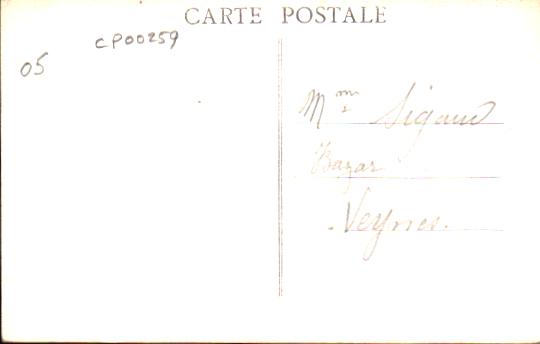 CARTE POSTALE
CP00259
05
Mme Sigaud
Bazar
Veynes.